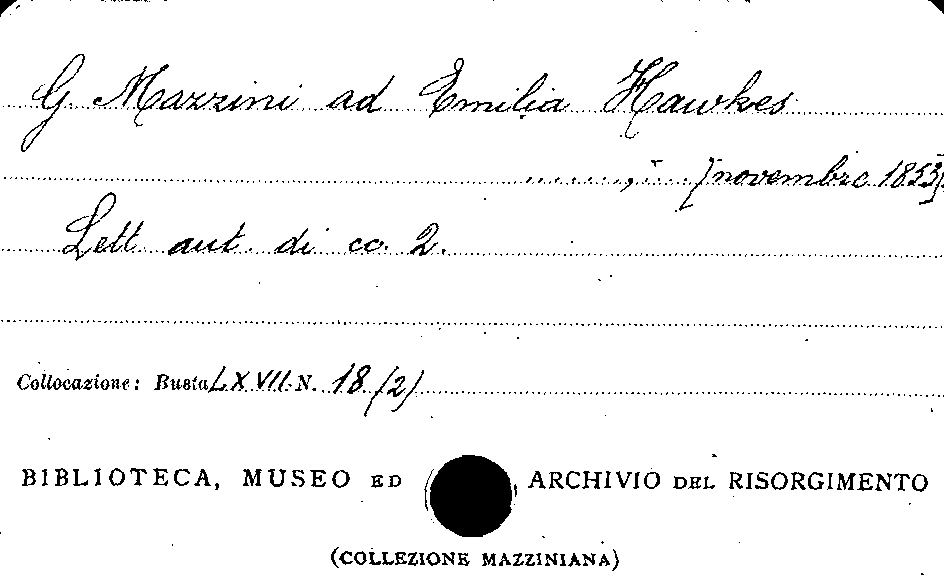 G. Mazzini ad Emilia Hawkes
........, .... [novembre 1853]
Lett. aut. di cc. 2.
Collocazione: Busta LXVII N. 18 (2)
BIBLIOTECA, MUSEO ED ARCHIVIO DEL RISORGIMENTO
(COLLEZIONE MAZZINIANA)